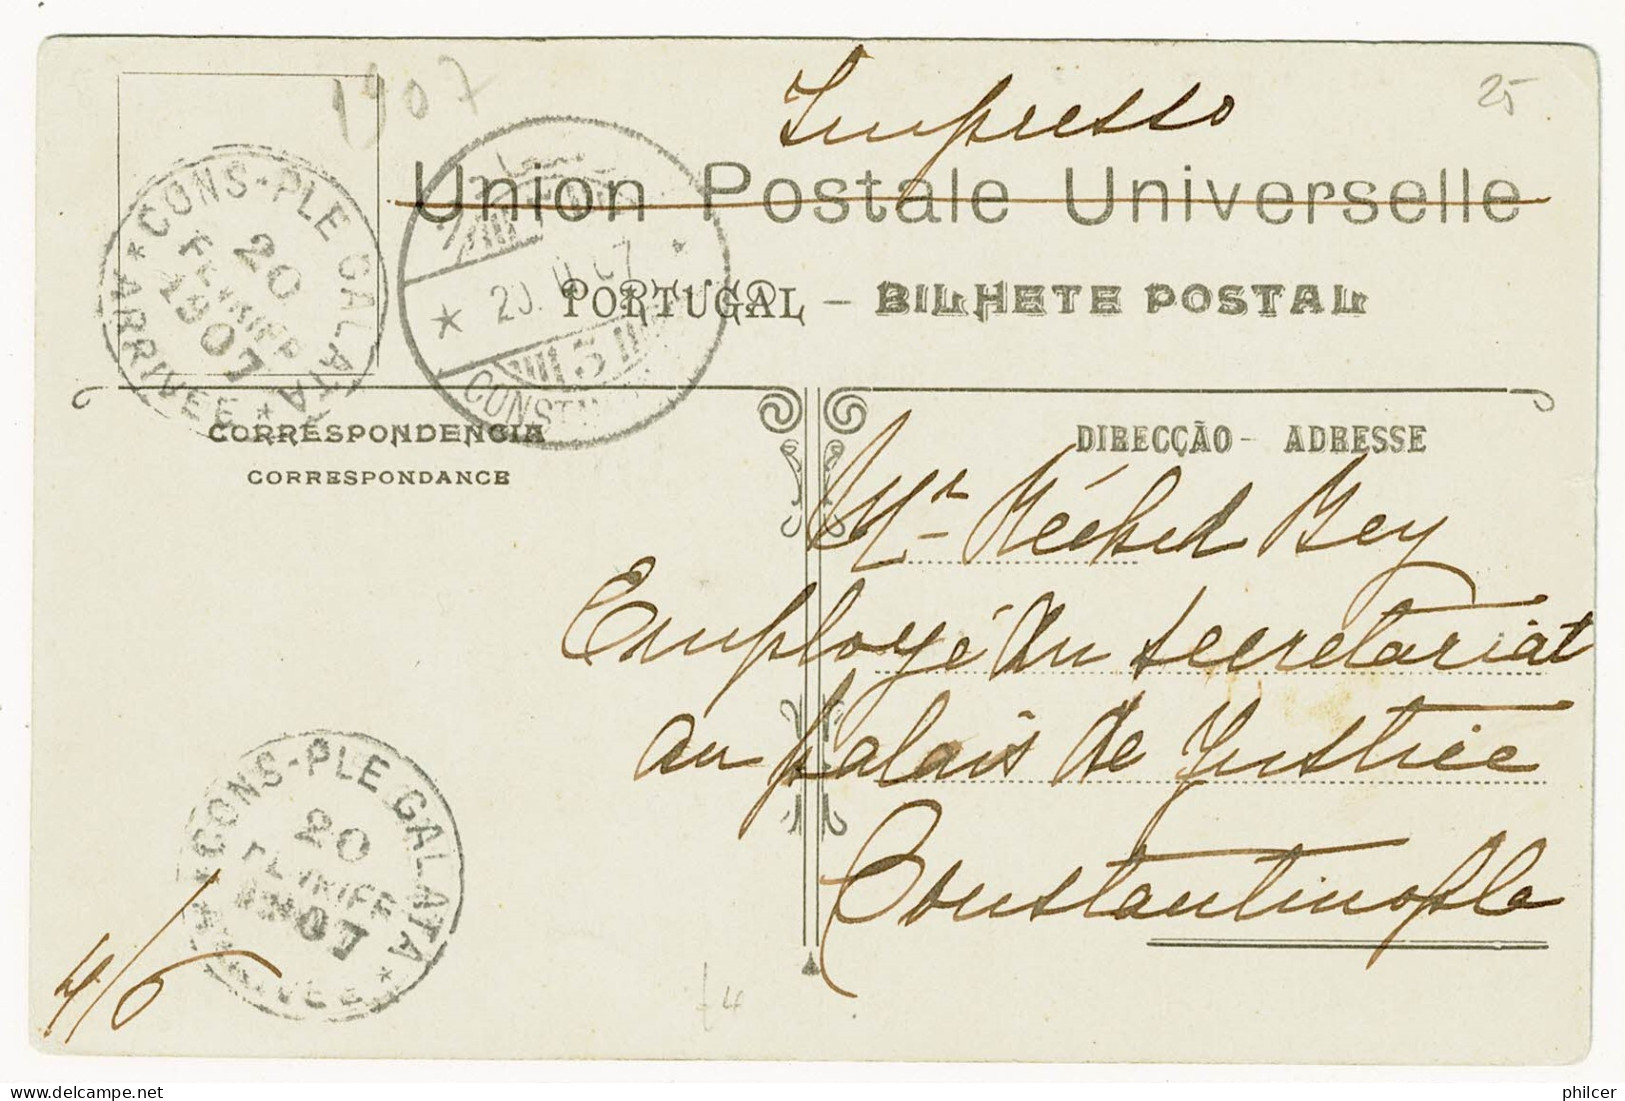 1907
Impresso
25
Union Postale Universelle
PORTUGAL - BILHETE POSTAL
CONS-PLE GALATA
20
1907
* ARRIVEE *
20.
CONST
CORRESPONDENCIA
CORRESPONDANCE
DIRECÇÃO - ADRESSE
Mr Réched Bey
Employé du secretariat
au palais de Justice
Constantinople
CONS-PLE GALATA
20
1907
4/6
philcer